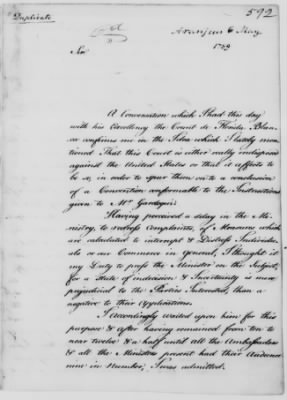 Duplicate
592
Aranjues 6 May
1789
Sir
A Conversation which I had this day
with his Excellency the Count de Florida Blan-
ca confirms me in the Idea which I lately men-
tioned That this Court is either really indisposed
against the United States or that it affects to
be so, in order to spur them on to a conclusion
of a Convention conformable to the Instructions
given to Mr. Gardoqui.
Having perceived a delay in the Mi-
nistry, to redress Complaints, of Measures which
are calculated to interrupt & Distress Individu-
als or our Commerce in general, I thought it
my Duty to press the Minister on the Subject,
for a State of indecision & Uncertainty is more
prejudicial to the Parties Interested, than a
negative to their Applications.
I accordingly waited upon him for this
purpose & after having remained from ten to
near twelve & a half until all the Ambassadors
& all the Ministers present had their Audience
nine in Number, I was admitted.